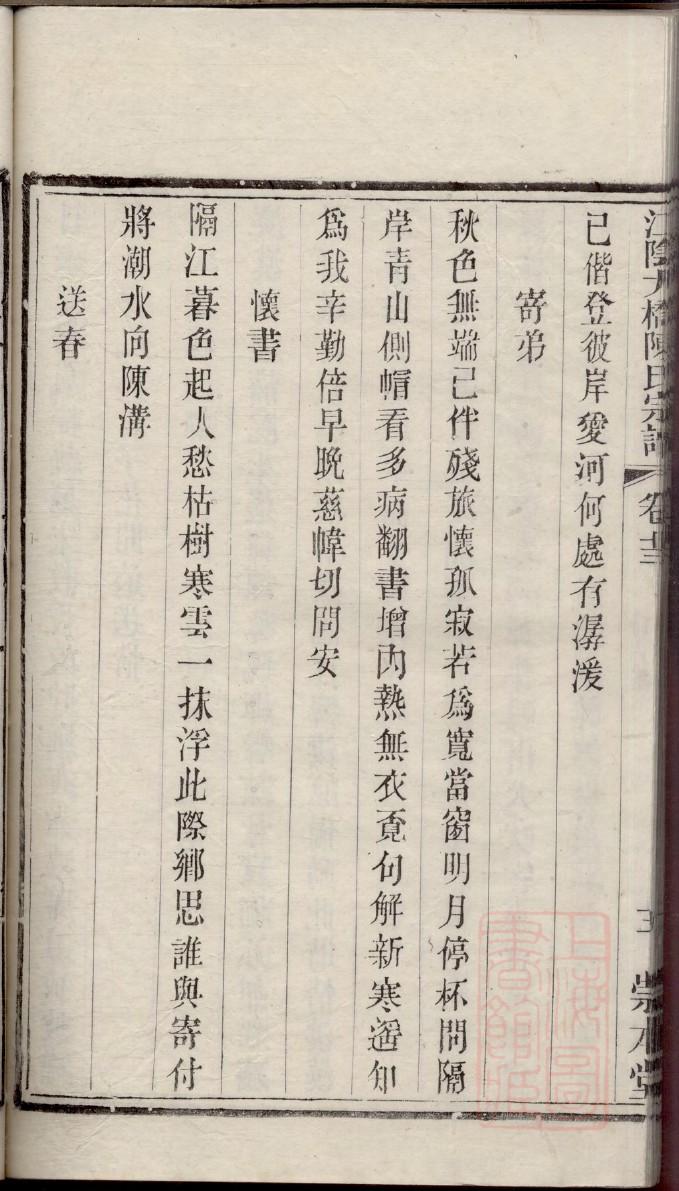 江陰大橋陳氏宗譜 卷廿三 崇本堂
已偕登彼岸愛河何處有潺湲
寄弟
秋色無端已伴殘旅懷孤寂若為寬當窗明月停杯問隔
岸青山側帽看多病翻書增內熱無衣覔句解新寒遥知
為我辛勤倍早晚慈幃切問安
懷書
隔江暮色起人愁枯樹寒雲一抹浮此際鄉思誰與寄付
將潮水向陳溝
送春
上海圖書館藏